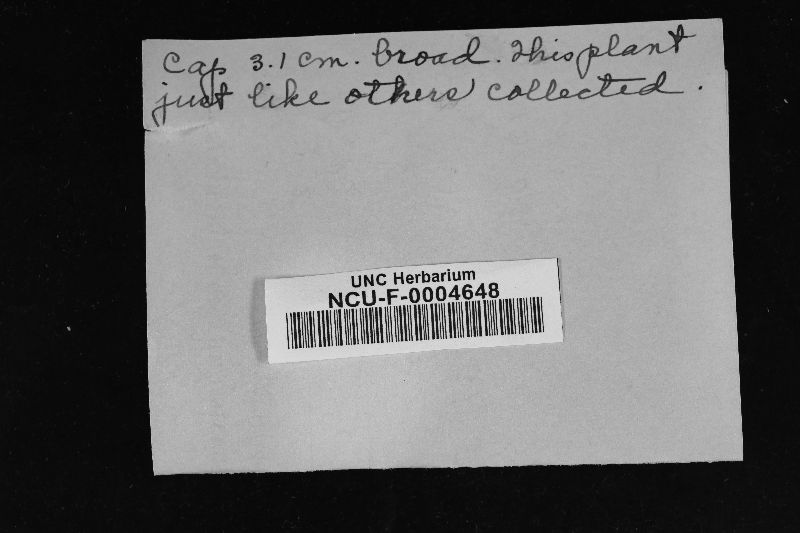 Cap 3.1 cm. broad. This plant
just like others collected.
UNC Herbarium
NCU-F-0004648